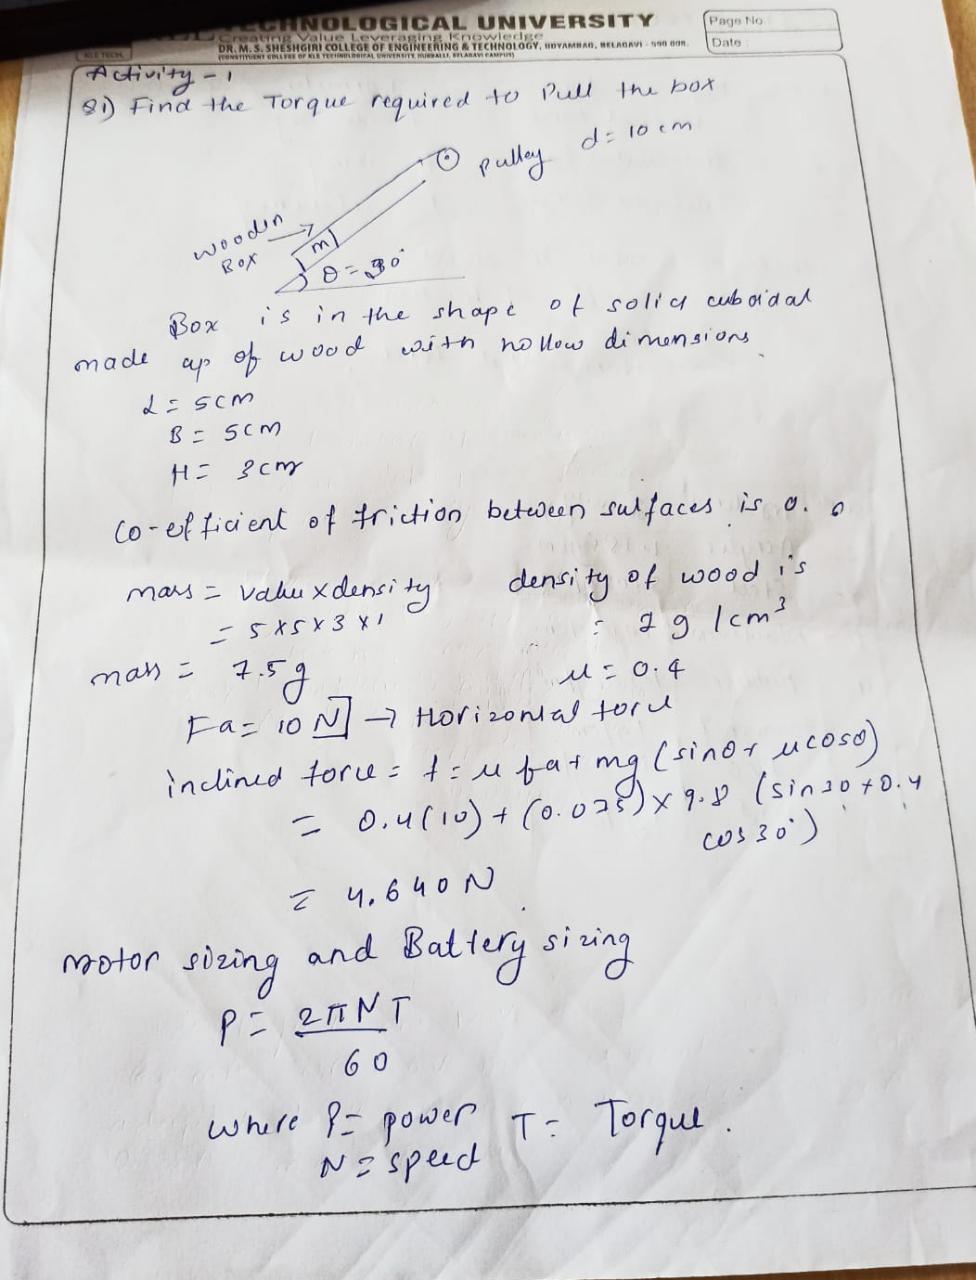 CHNOLOGICAL UNIVERSITY
Creating Value Leveraging Knowledge
DR. M. S. SHESHGIRI COLLEGE OF ENGINEERING & TECHNOLOGY, UDYAMBAG, BELAGAVI - 590 008.
(CONSTITUENT COLLEGE OF KLE TECHNOLOGICAL UNIVERSITY, HUBBALLI, BELAGAVI CAMPUS)
KLE TECH.
Page No
Date
Activity - 1
Q1) Find the Torque required to Pull the box
pulley d = 10 cm
wooden
Box
m
θ = 30°
Box is in the shape of solid cuboidal
made up of wood with hollow dimensions
L = 5cm
B = 5cm
H = 3cm
Co-efficient of friction between surfaces is 0.
mass = value x density
density of wood is
= 5 x 5 x 3 x 1
g/cm³
mass = 7.5g
μ = 0.4
Fa = 10 N] → Horizontal force
inclined force = f = μ fa + mg (sinθ + μcosθ)
= 0.4(10) + (0.075) x 9.8 (sin 30 + 0.4
cos 30°)
= 4.640 N
motor sizing and Battery sizing
P = 2πNT
60
where P = power T = Torque.
N = speed